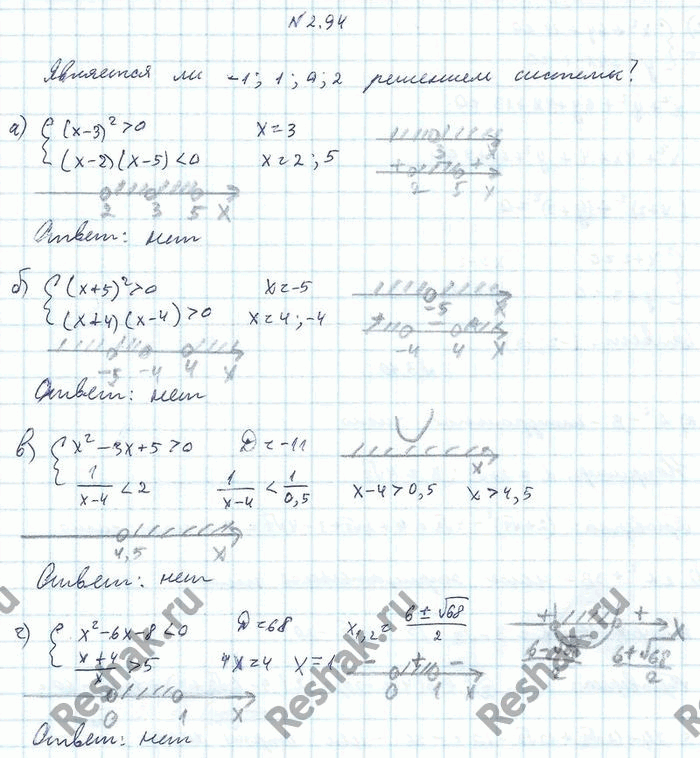 №2.94
Является ли -1; 1; 0; 2 решением системы?
а) { (x-3)² >0 x=3
(x-2)(x-5) <0 x=2; 5
3 x
+ - +
2 5 x
2 3 5 x
Ответ: нет
б) { (x+5)² >0 x=-5
(x+4)(x-4) >0 x=4; -4
-5 x
+ - +
-4 4 x
-5 -4 4 x
Ответ: нет
в) { x² -3x+5 >0 D=-11
1/(x-4) <2 1/(x-4) < 1/0,5 x-4>0,5 x>4,5
x
4,5 x
Ответ: нет
г) { x²-6x-8<0 D=68 x₁,₂= (6±√68)/2
(x+4)/x >5 4x=4 x=1
+ - + x
(6-√68)/2 (6+√68)/2
- + -
0 1 x
0 1 x
Ответ: нет
Reshak.ru
Reshak.ru
Reshak.ru
Reshak.ru